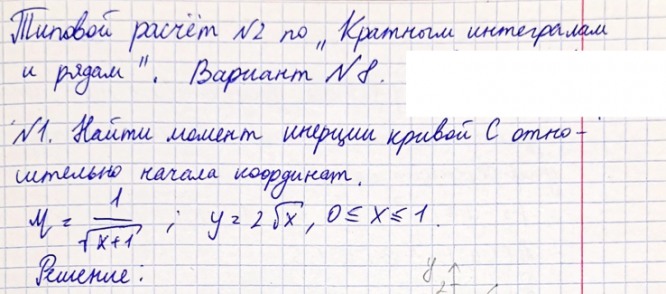 Типовой расчёт N2 по „Кратным интегралам
и рядам". Вариант N8.
N1. Найти момент инерции кривой C отно-
сительно начала координат.
M = 1/√(x+1) ; y = 2√x, 0 ≤ x ≤ 1.
Решение:
y
2